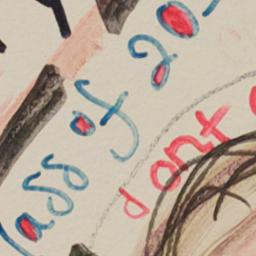 lass of 20
dont